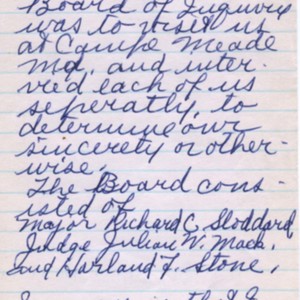 Board of Inquiry
was to visit us
at Camp Meade
Md, and inter-
ved each of us
seperatly, to
determine our
sincerty or other-
wise.
The Board cons-
isted of
Major Richard C. Stoddard
Judge Julian W. Mack,
and Harland F. Stone,